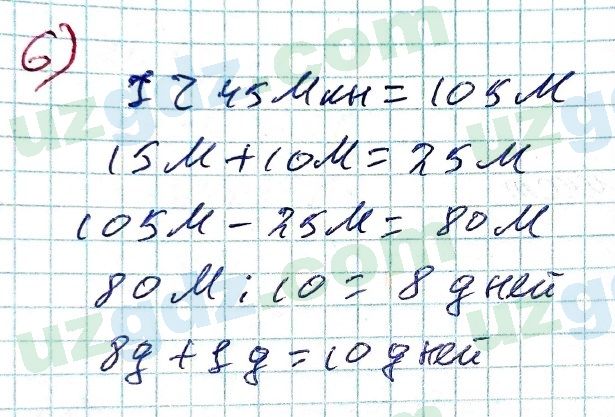 6)
1 ч 45 мин = 105 м
15 м + 10 м = 25 м
105 м - 25 м = 80 м
80 м : 10 = 8 дней
8д + 1д = 10 дней
uzgdz.com